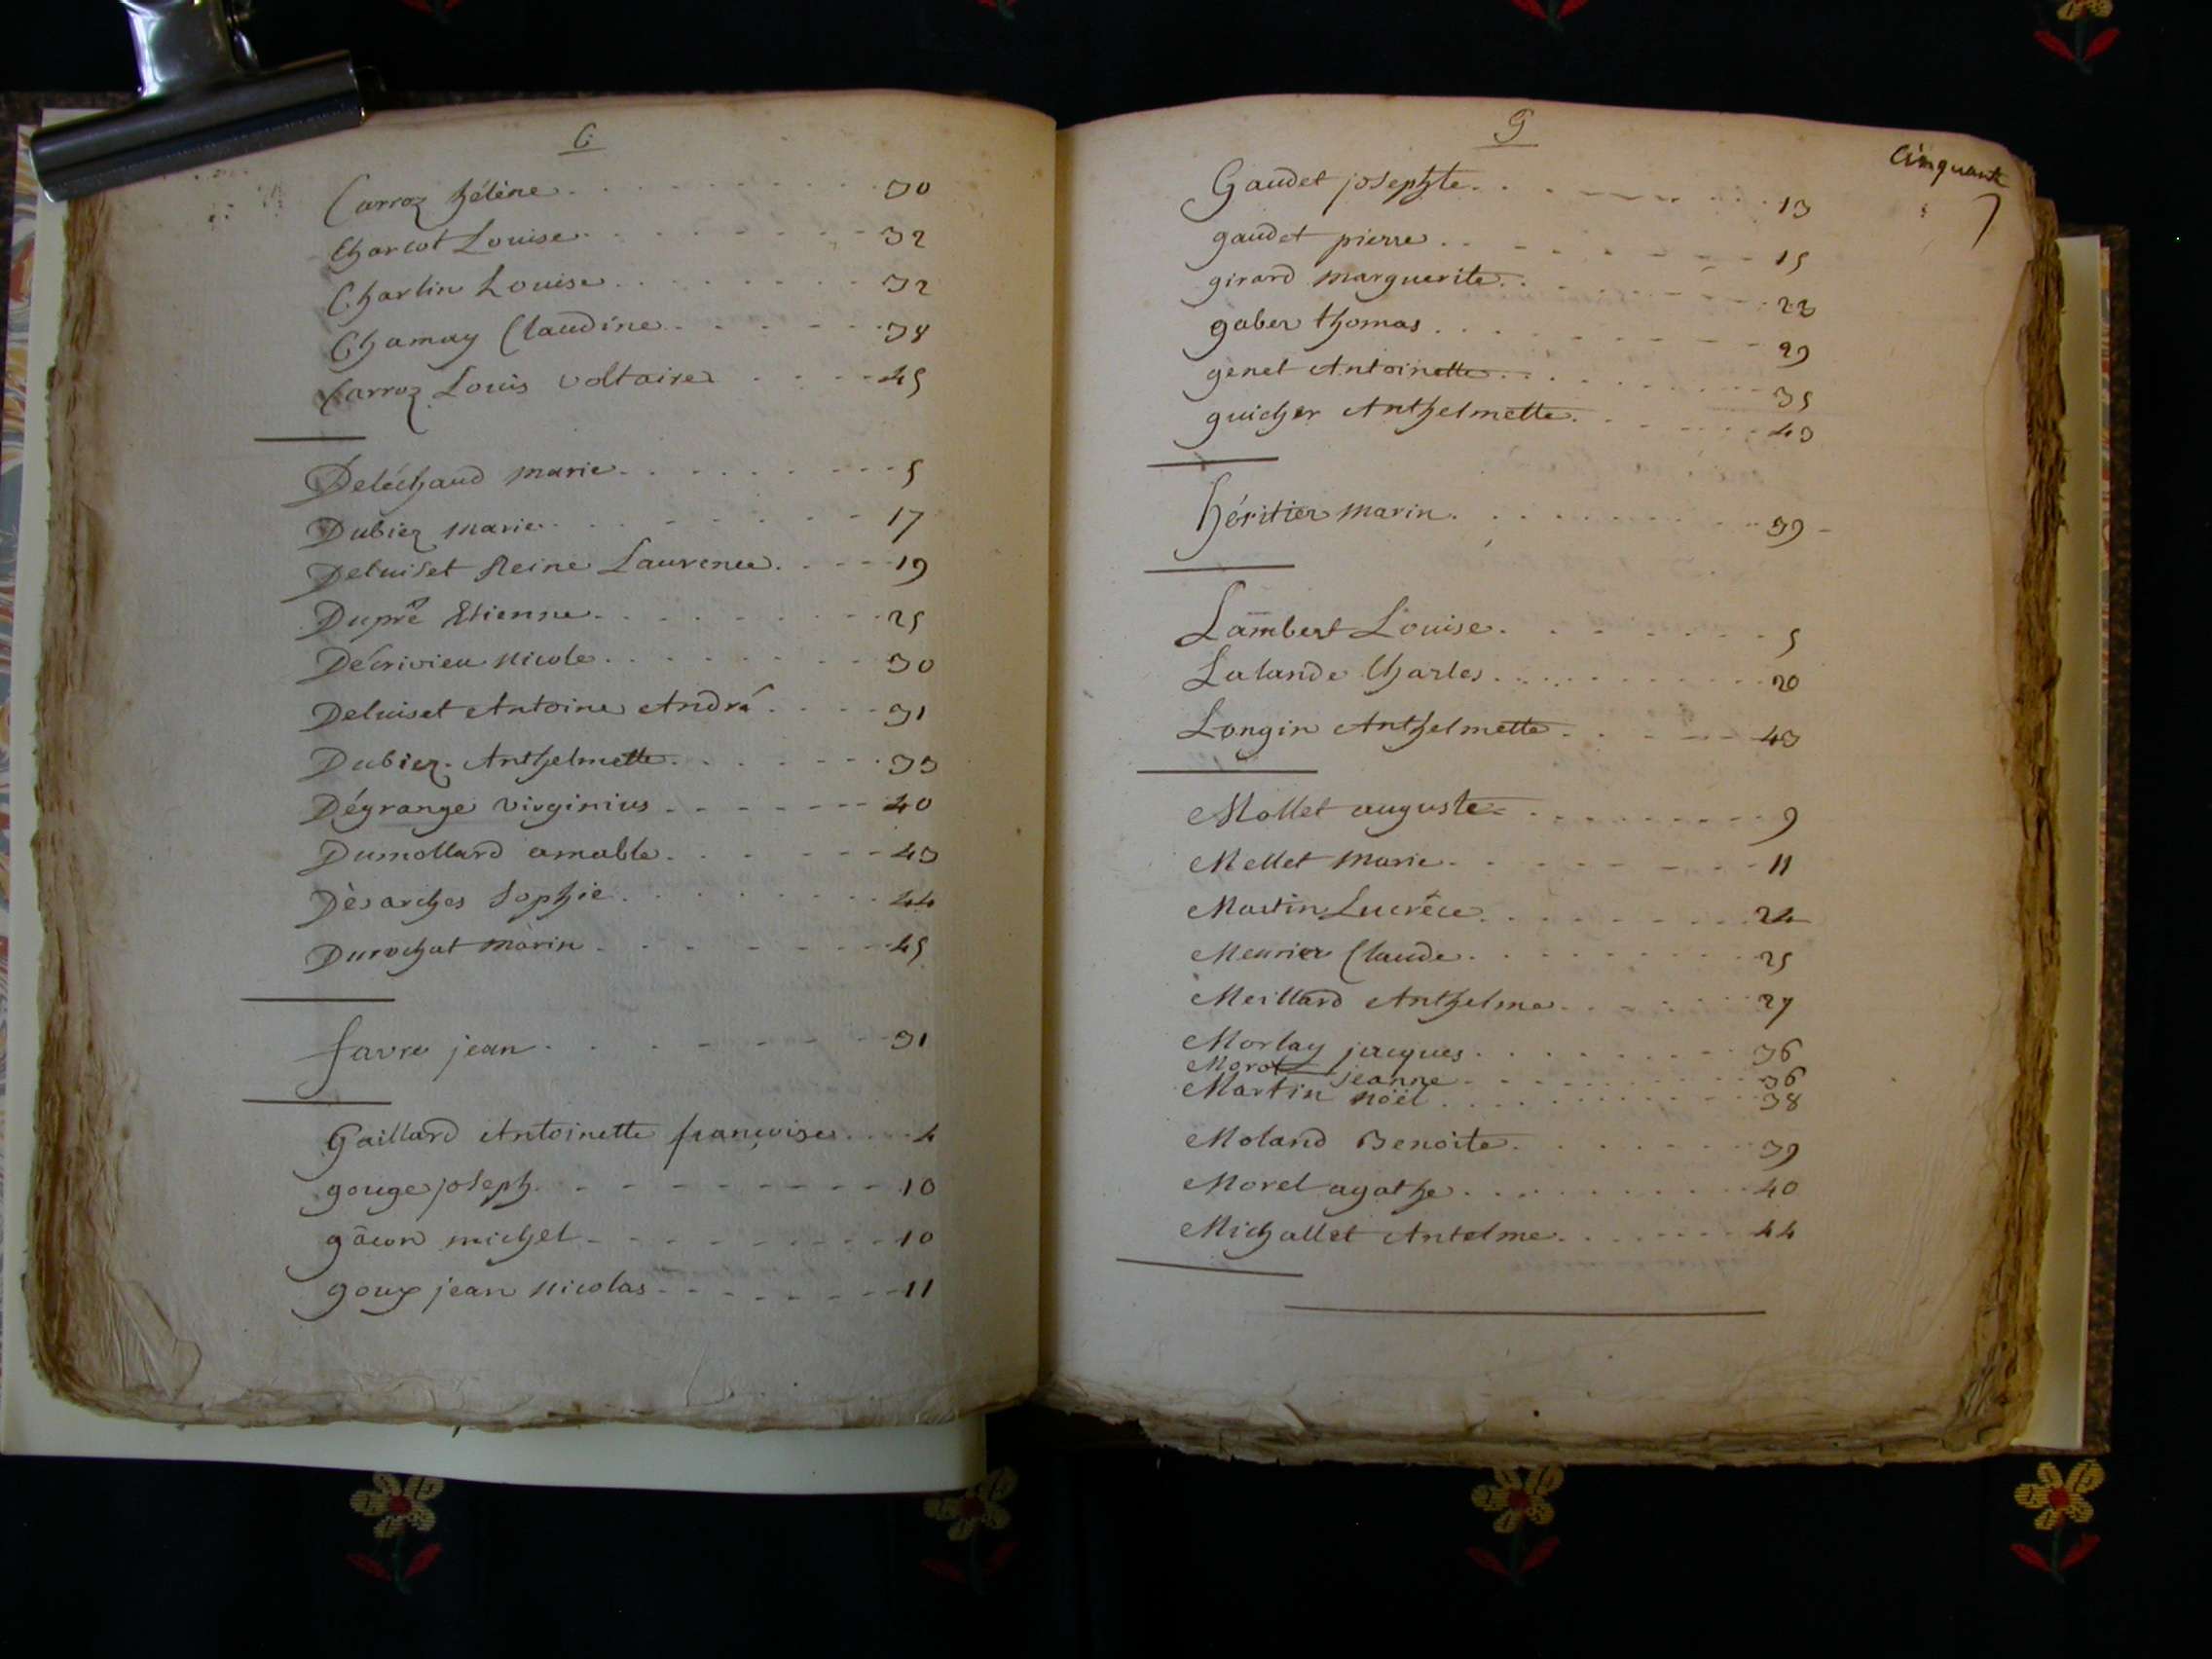 C
Carroz hélène 30
Charcot Louise 32
Charlin Louise 32
Chamay Claudine 38
Carroz Louis voltaire 45
Deléchaud marie 5
Dubiez marie 17
Deluiset Reine Laurence 19
Dupré Etienne 25
Décrivieu nicole 30
Deluiset Antoine André 31
Dubiez Anthelmette 33
Dégrange virginius 40
Dumollard amable 43
Dèsarches Sophie 44
Durochat marin 45
favre jean 31
Gaillard Antoinette françoise 4
gouge joseph 10
gâcon michel 10
goux jean nicolas 11
G
Cinquante
7
Gaudet josephte 13
gaudet pierre 15
girard marguerite 23
gaber thomas 29
genet Antoinette 35
guicher Anthelmette 43
héritier marin 39
Lambert Louise 5
Lalande Charles 20
Longin Anthelmette 43
Mollet auguste 9
Mellet marie 11
Martin Lucrèce 24
Meurier Claude 25
Meillard Anthelme 27
Morlay jacques 36
Morat jeanne 36
Martin noël 38
Moland Benoite 39
Morel agathe 40
Michallet Antelme 44